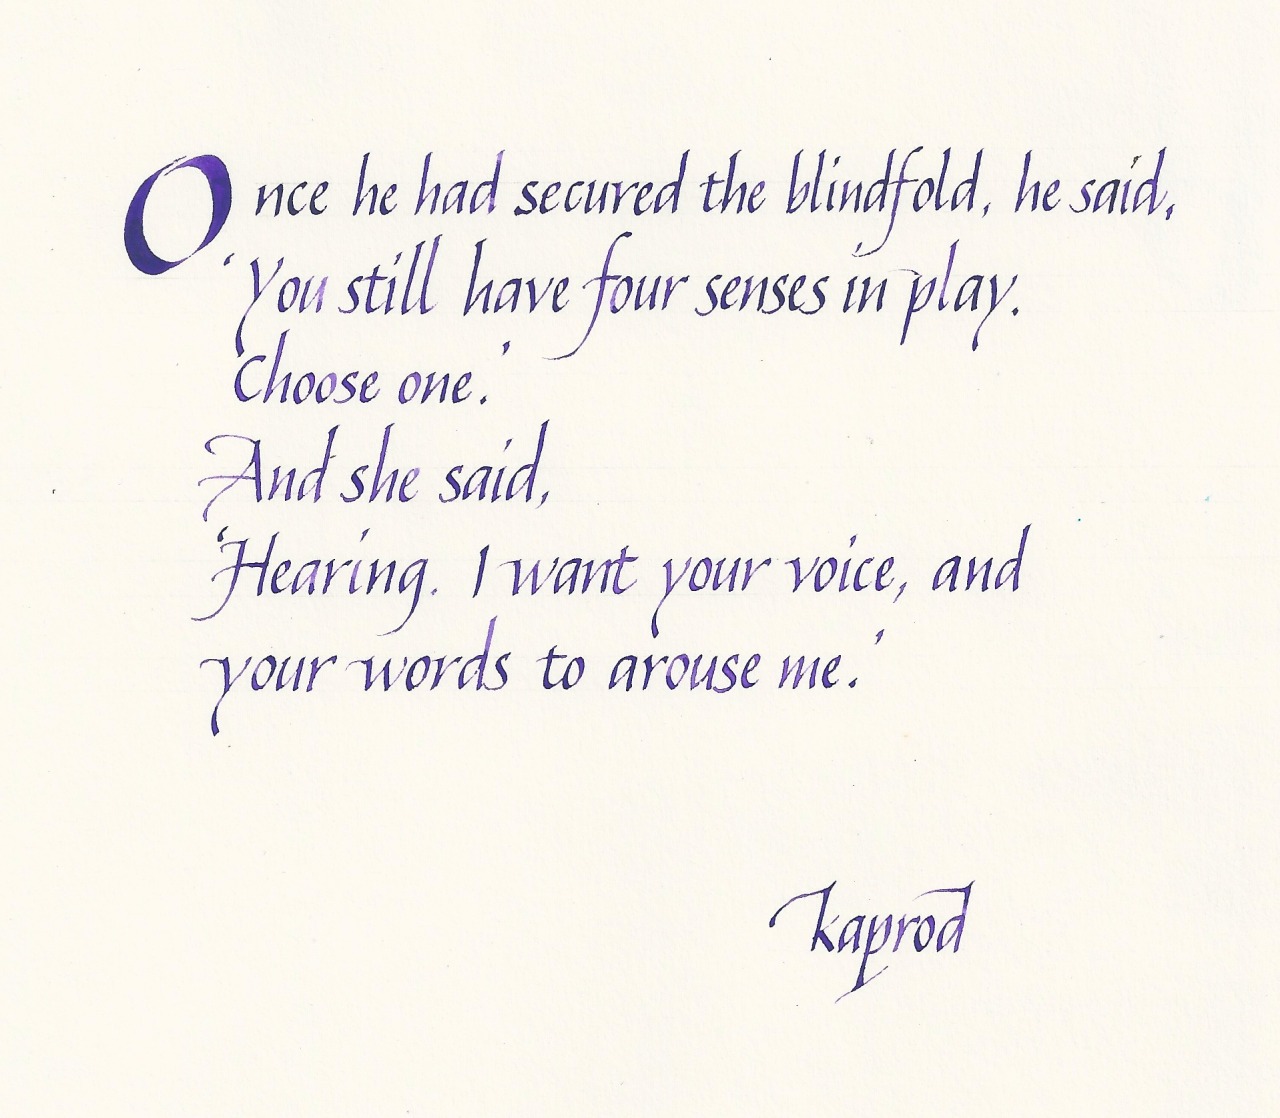 Once he had secured the blindfold, he said,
'You still have four senses in play.
Choose one.'
And she said,
'Hearing. I want your voice, and
your words to arouse me.'
kaprod